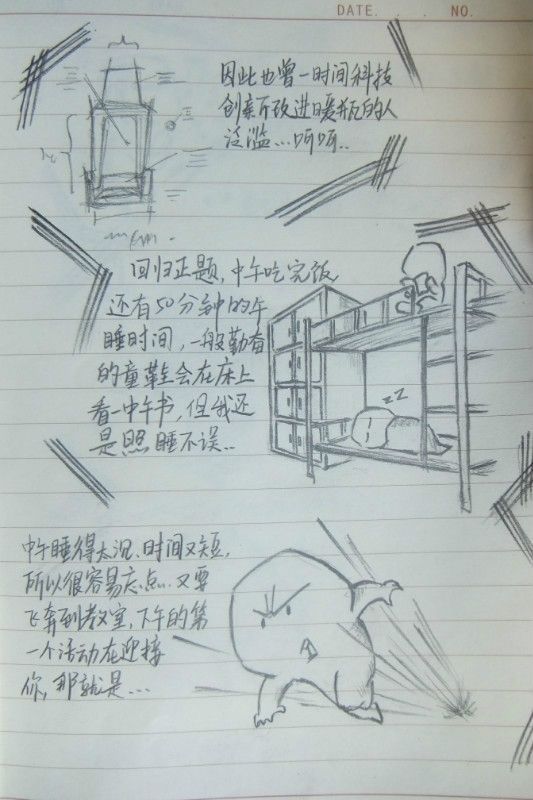 DATE. . . NO.
因此也曾一时间科技
创新所改进暖瓶的人
泛滥...呵呵..
回归正题,中午吃完饭
还有50分钟的午
睡时间,一般勤奋
的童鞋会在床上
看一中午书,但我还
是照睡不误..
ZZ
中午睡得太沉、时间又短,
所以很容易忘点..又要
飞奔到教室,下午的第
一个活动在迎接
你,那就是...